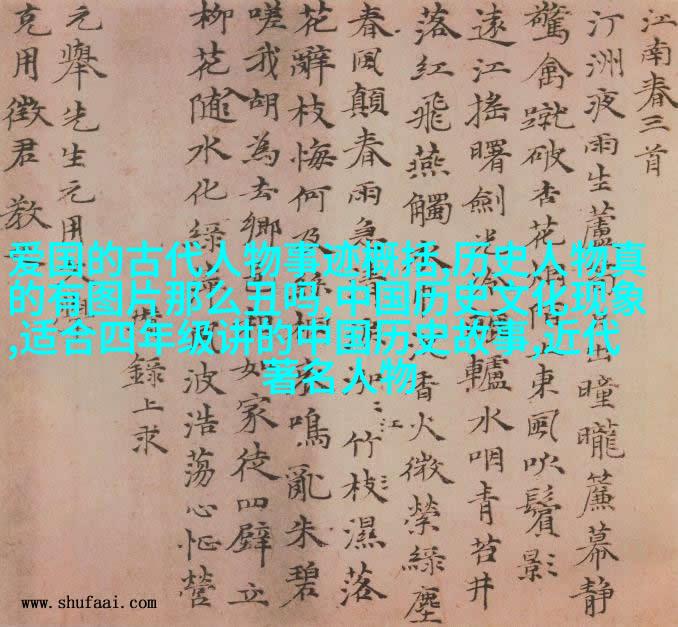 江南春三首
汀洲夜雨生蘆出曈曨簾幕靜
驚禽蹴破杏花東風吹鬢影
遠江搖曙劍轤水咽青苔井
落紅飛燕觸香火微縈綠塵
春風顛春雨急江竹枝濕落
花辭枝悔何及鳴亂朱碧
嗟我胡為去鄉如家徒四壁立
柳花隨水化綠波浩蕩心怔營
錄上求
元舉先生元用
克用徵君教
爱国的古代人物事迹概括,历史人物真
的有图片那么丑吗,中国历史文化现象
,适合四年级讲的中国历史故事,近代
著名人物
www.shufaai.com